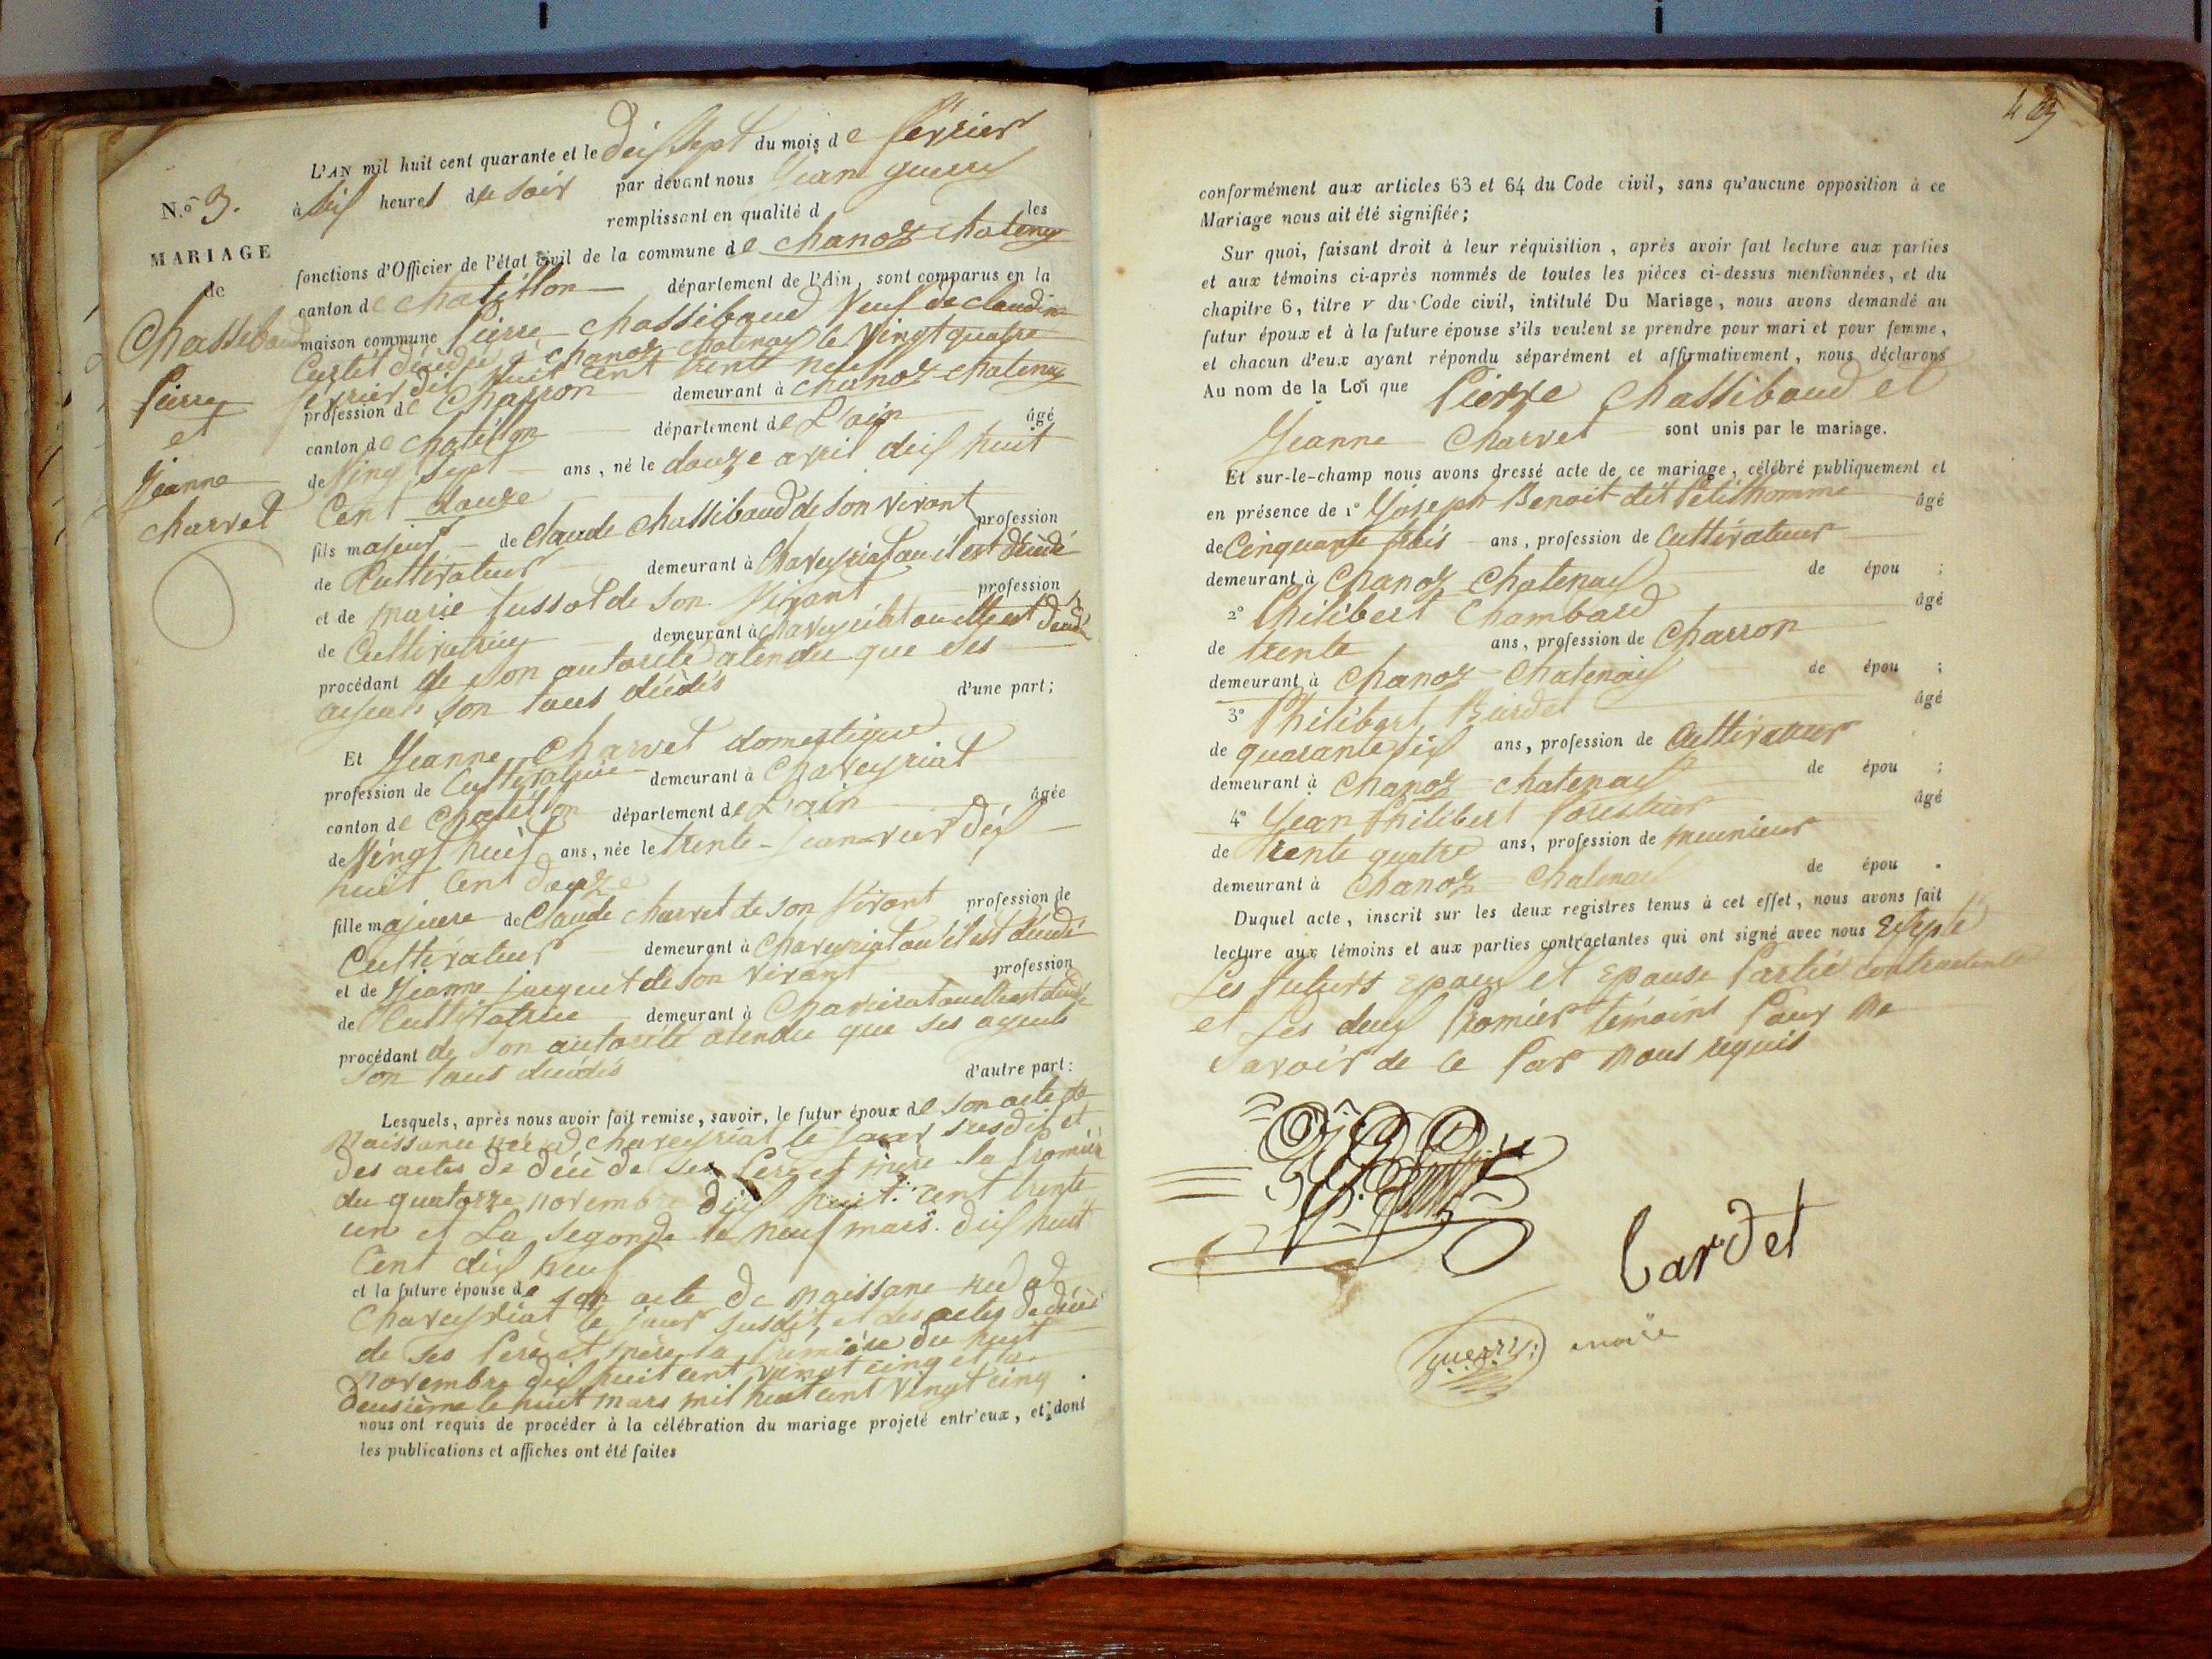 N.o 3.
MARIAGE
de
Chassibaud
Pierre
et
Jeanne
Charvet
L'AN mil huit cent quarante et le dix Sept du mois de février
à six heures du soir par devant nous Jean guerry
remplissant en qualité d les
fonctions d'Officier de l'état civil de la commune de Chanoz Chatenay
canton de Chatillon département de l'Ain, sont comparus en la
maison commune Pierre Chassibaud Veuf de claudine
décédée a chanoz chatenay le Vingt quatre
février dix huit cent trente neuf
profession de Charron demeurant à chanoz chatenay
canton de Chatillon département de L'ain âgé
de Vingt Sept ans, né le douze avril dix huit
Cent douze
fils majeur de Claude Chassibaud de son vivant profession
de Cultivateur demeurant à Chaveyriat ou il est décédé
et de marie tussot de son Vivant profession
de Cultivatrice demeurant à chaveyriat ou elle est décédé
procédant de son autorité atendu que ses
ayeuls son tous décédés d'une part;
Et Jeanne Charvet domestique
profession de Cultivatrice demeurant à Chaveyriat
canton de Chatillon département de L'ain âgée
de Vingt huit ans, née le trente janvier dix
huit Cent douze
fille majeure de Claude Charvet de son Vivant profession de
Cultivateur demeurant à Chaveyriat ou il est décédé
et de Jeanne jacquet de son vivant profession
de Cultivatrice demeurant à Chaveriat ou elle est décédé
procédant de son autorité atendu que ses ayeuls
son tous décédés d'autre part:
Lesquels, après nous avoir fait remise, savoir, le futur époux de son acte de
Naissance né ad chaveyriat le jour susdit et
des actes de décè de ses Pere et mère la Promier
du quatorze novembre dix huit cent trente
un et La Segonde le neuf mars dix huit
Cent dix neuf
et la future épouse de son acte de naissance né ad
Chaveyriat le jour susdit et des actes de décè
de ses Père et mère la première du huit
novembre dix huit cent vingt cinq et la
deusième le huit mars mil huit cent vingt cinq
nous ont requis de procéder à la célébration du mariage projeté entr'eux, et dont
les publications et affiches ont été faites
conformément aux articles 63 et 64 du Code civil, sans qu'aucune opposition à ce
Mariage nous ait été signifiée;
Sur quoi, faisant droit à leur réquisition, après avoir fait lecture aux parties
et aux témoins ci-après nommés de toutes les pièces ci-dessus mentionnées, et du
chapitre 6, titre V du Code civil, intitulé Du Mariage, nous avons demandé au
futur époux et à la future épouse s'ils veulent se prendre pour mari et pour femme,
et chacun d'eux ayant répondu séparément et affirmativement, nous déclarons
Au nom de la Loi que Pierre Chassibaud et
Jeanne Charvet sont unis par le mariage.
Et sur-le-champ nous avons dressé acte de ce mariage, célébré publiquement et
en présence de 1° Joseph Benoit dit Petithomme âgé
de Cinquante trois ans, profession de Cultivateur
demeurant à Chanoz Chatenay de épou ;
2° Philibert Chambard âgé
de trente ans, profession de Charron
demeurant à Chanoz Chatenay de épou ;
3° Philibert Bardet âgé
de quarante six ans, profession de Cultivateur
demeurant à Chanoz chatenay de épou ;
4° Jean Philibert forestier âgé
de trente quatre ans, profession de meunieur
demeurant à Chanoz Chatenay de épou .
Duquel acte, inscrit sur les deux registres tenus à cet effet, nous avons fait
lecture aux témoins et aux parties contractantes qui ont signé avec nous Exsepté
Les futurs Epoux et Epouse Partie contractante
et Les deux Promier témoins Pour ne
Savoir de ce Par nous requis
Bardet
guerry maire